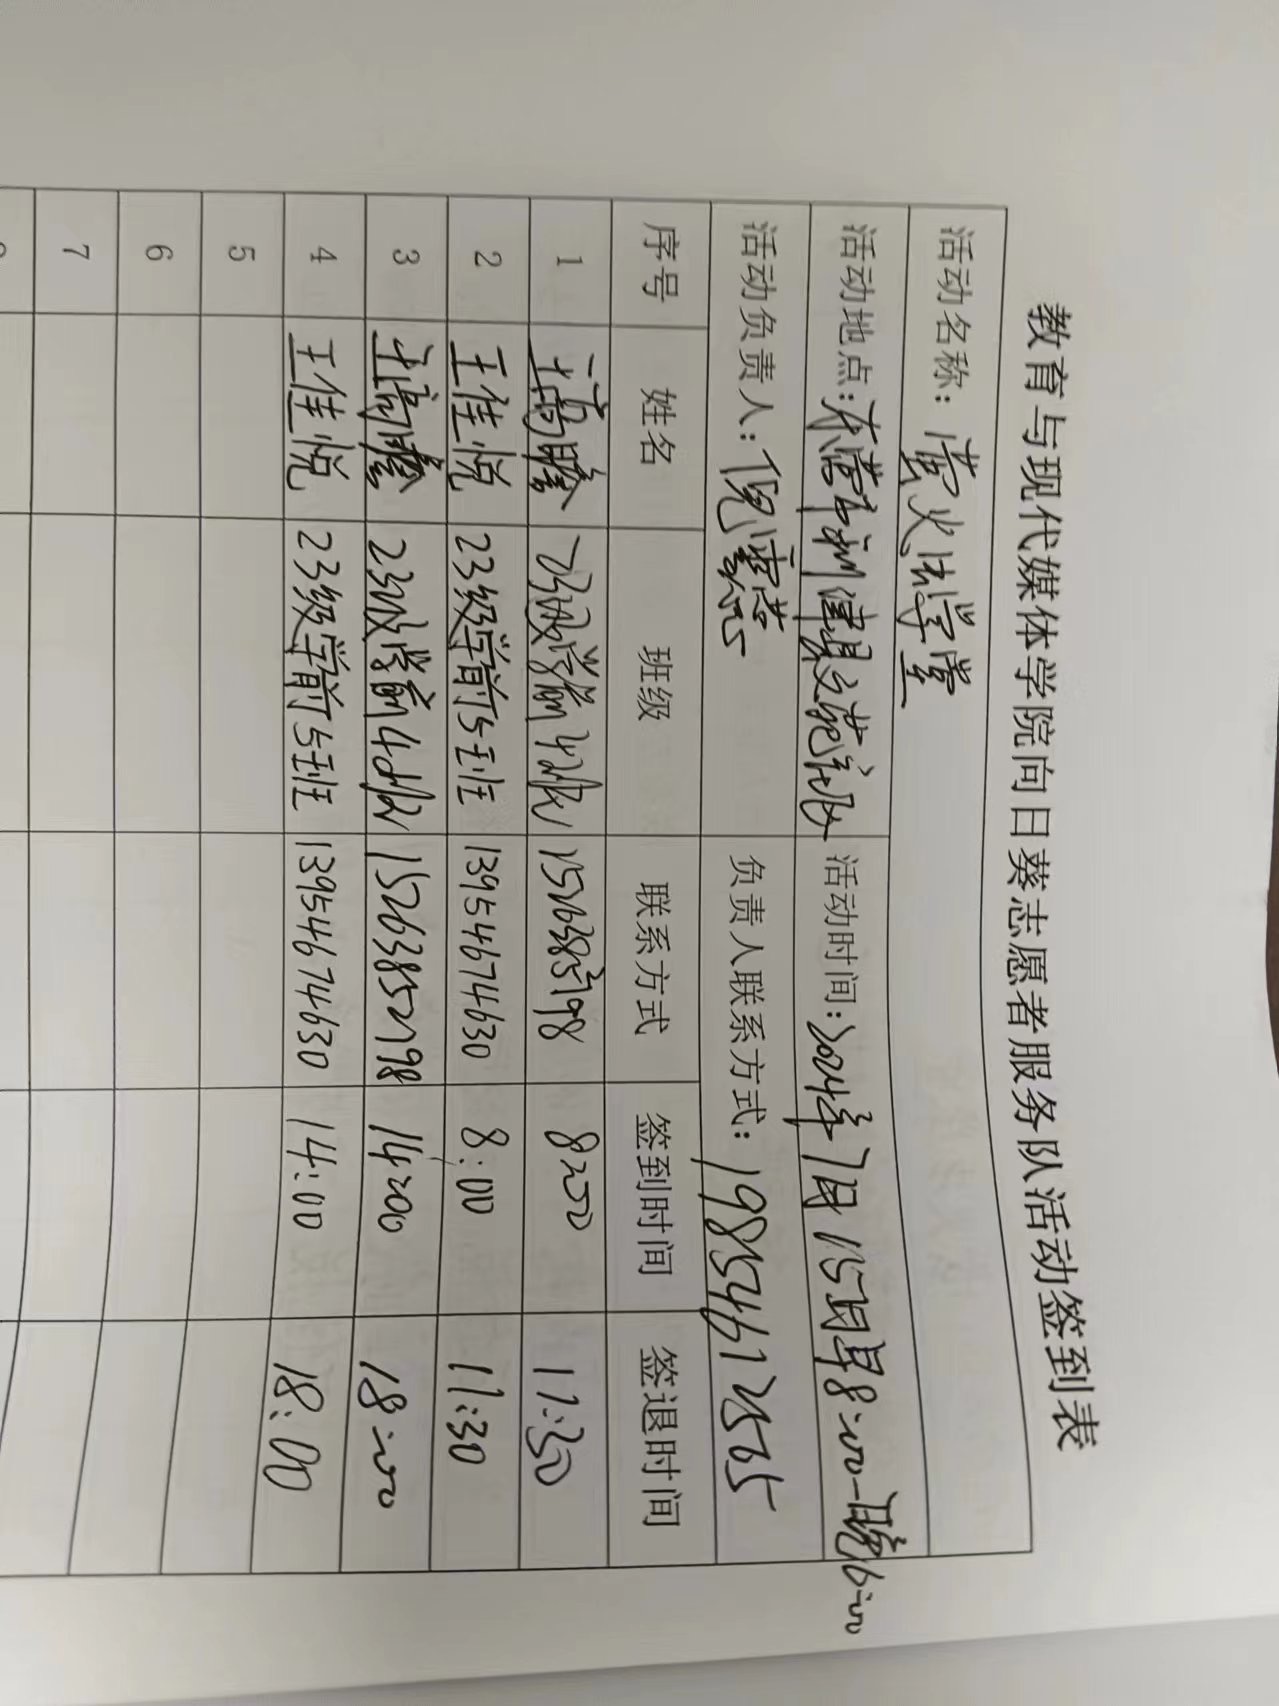 教育与现代媒体学院向日葵志愿者服务队活动签到表
活动名称：萤火法学堂
活动地点：东营市利津县 活动时间：2024年7月15日早8:00-晚6:00
活动负责人：倪 负责人联系方式：19854617565
序号 姓名 班级 联系方式 签到时间 签退时间
1 王高瞻 23级学前4班 15263852798 8:00 11:30
2 王佳悦 23级学前5班 13954674630 8:00 11:30
3 王高瞻 23级学前4班 15263852798 14:00 18:00
4 王佳悦 23级学前5班 13954674630 14:00 18:00
5
6
7